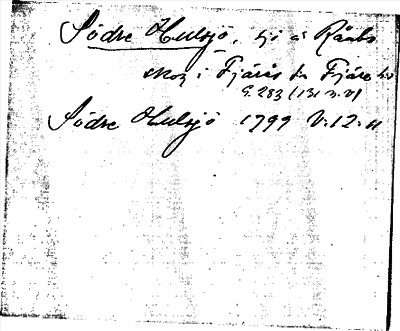 Södre Hulsjö, sjö å Råabo
skog i Fjärås sn Fjäre hd
G. 283 (131 n. 2)
Södre Hulsjö 1799 V:12-11